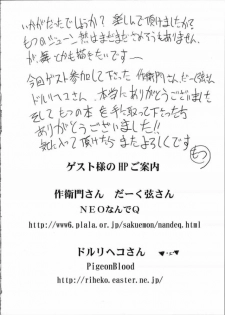 いかがだったでしょうか？楽しんで頂けましたかな
もつのジューン熱はまだまださめそうもありません。
が、舞とかも描きたいです～
今回ゲスト参加して下さった作衛門さん、だーく弦さん
ドルリヘコさん、本当にありがとうございました
そしてもつの本を手に取って下さった方
ありがとうございました!!
気に入って頂けたらまたよろしくです
もつ
ゲスト様のHPご案内
作衛門さん　だーく弦さん
NEOなんでQ
http://www6.plala.or.jp/sakuemon/nandeq.html
ドルリヘコさん
PigeonBlood
http://riheko.easter.ne.jp/